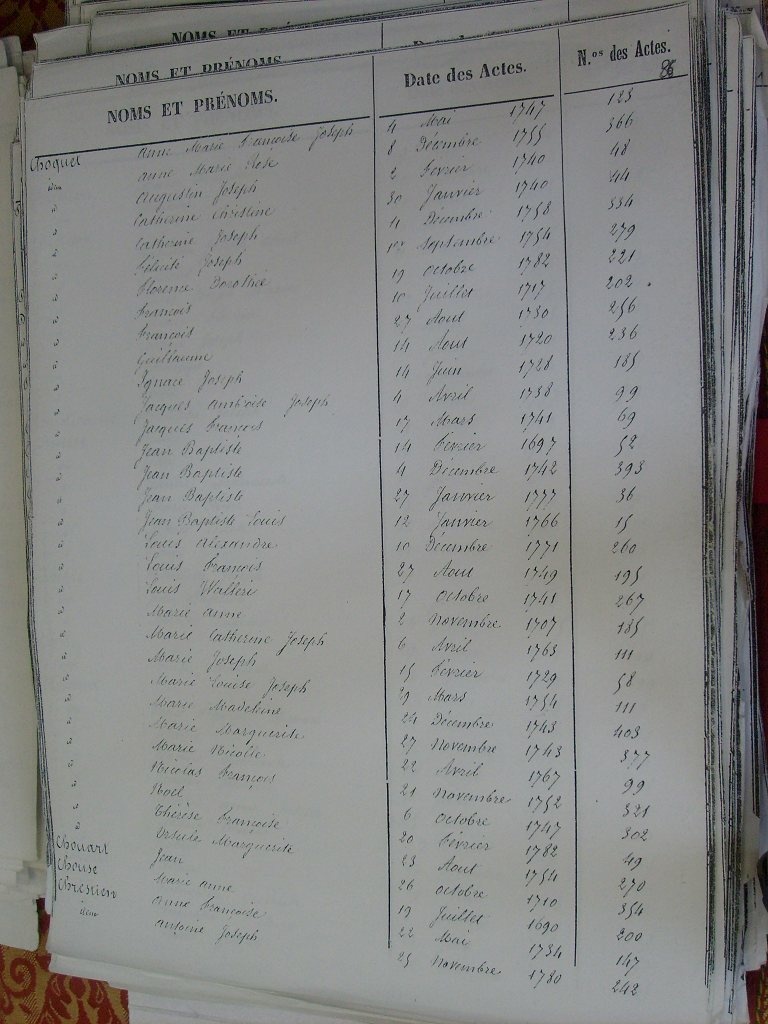 NOMS ET PRÉNOMS.
NOMS ET PRÉNOMS
NOMS ET PRÉNOMS. Date des Actes. N.os des Actes.
86
Choquel Anne Marie Françoise Joseph 4 Mai 1747 123
idem Anne Marie Rose 8 Décembre 1755 366
d Augustin Joseph 2 Février 1740 48
d Catherine Christine 30 Janvier 1740 44
d Catherine Joseph 11 Décembre 1758 334
d Félicité Joseph 1er Septembre 1754 279
d Florence Dorothée 19 Octobre 1782 221
d François 10 Juillet 1717 202
d François 27 Aout 1730 256
d Guillaume 14 Aout 1720 236
d Ignace Joseph 14 Juin 1728 185
d Jacques Ambroise Joseph 4 Avril 1738 99
d Jacques François 17 Mars 1741 69
d Jean Baptiste 14 Février 1697 52
d Jean Baptiste 4 Décembre 1742 393
d Jean Baptiste 27 Janvier 1777 36
d Jean Baptiste Louis 12 Janvier 1766 15
d Louis Alexandre 10 Décembre 1771 260
d Louis François 27 Aout 1749 195
d Louis Walleri 17 Octobre 1741 267
d Marie Anne 2 Novembre 1707 185
d Marie Catherine Joseph 6 Avril 1763 111
d Marie Joseph 15 Février 1729 58
d Marie Louise Joseph 29 Mars 1754 111
d Marie Madeleine 24 Décembre 1743 403
d Marie Marguerite 27 Novembre 1743 377
d Marie Nicolle 22 Avril 1767 99
d Nicolas François 21 Novembre 1752 321
d Noel 6 Octobre 1747 302
d Thérèse Françoise 20 Février 1782 49
d Ursule Marguerite 23 Aout 1754 270
Chouart Jean 26 Octobre 1710 354
Chouse Marie anne 19 Juillet 1690 200
Chrestien Anne Françoise 22 Mai 1734 147
idem Antoine Joseph 25 Novembre 1780 242